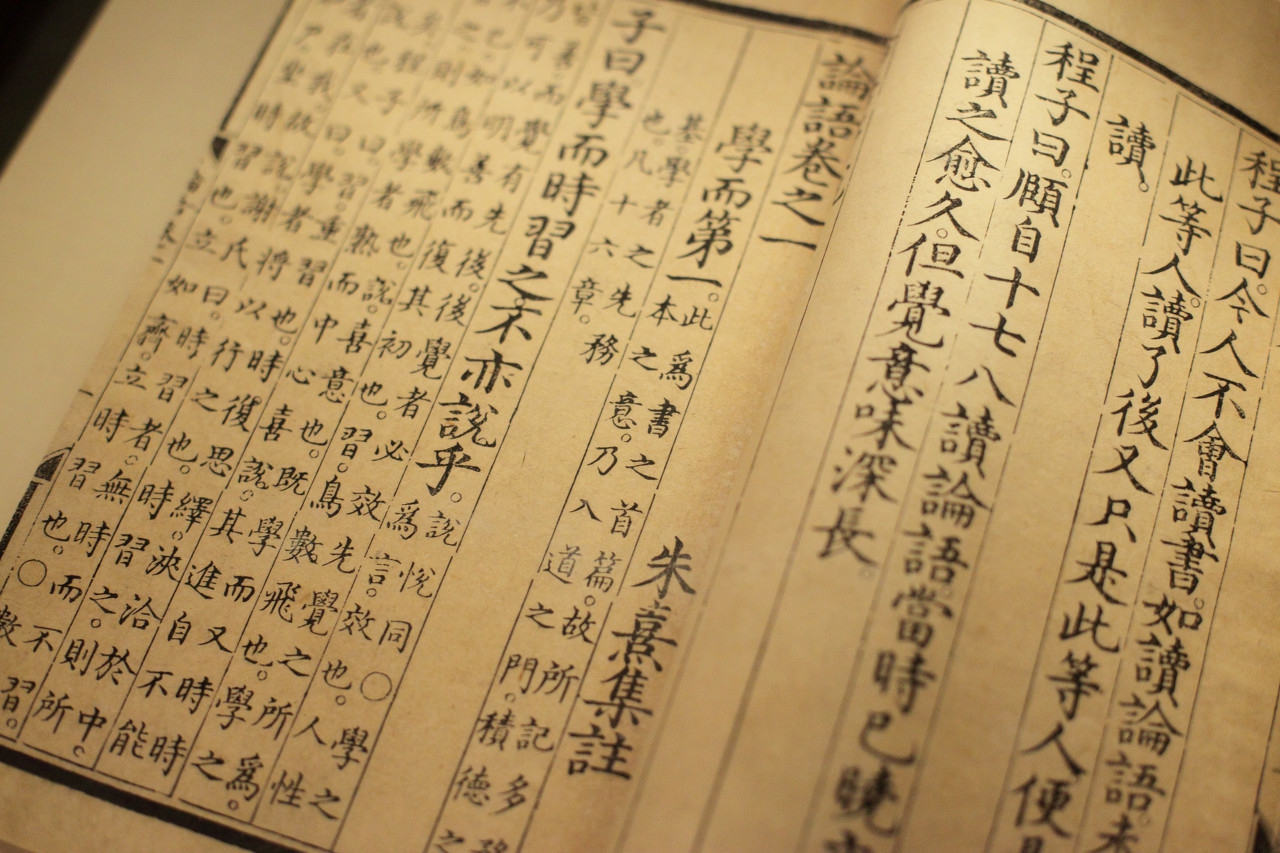 程子曰。今人不會讀書。如讀論語。未
此等人。讀了後又只是此等人便是
讀。
程子曰。頤自十七八讀論語。當時已曉
讀之愈久。但覺意味深長。
論語卷之一
朱熹集註
學而第一。此爲書之首篇。故所記多務
本之意。乃入道之門。積德之
基。學者之先務
也。凡十六章。
子曰學而時習之。不亦說乎。說悅同○學之
爲言效也。人性
皆善。而覺有先後。後覺者必效先覺之所爲。
乃可以明善而復其初也。習。鳥數飛也。學之
已。如鳥數飛也。說。喜意也。既學而又時
之。則所學者熟。而中心喜說。其進自不能
矣。程子曰。習。重習也。時復思繹。浹洽於中。
說也。又曰。學者。將以行之也。時習之。則所
者在我。故說。謝氏曰。時習者。無時而不習。
尸。坐時習也。立如齊。立時習也。○